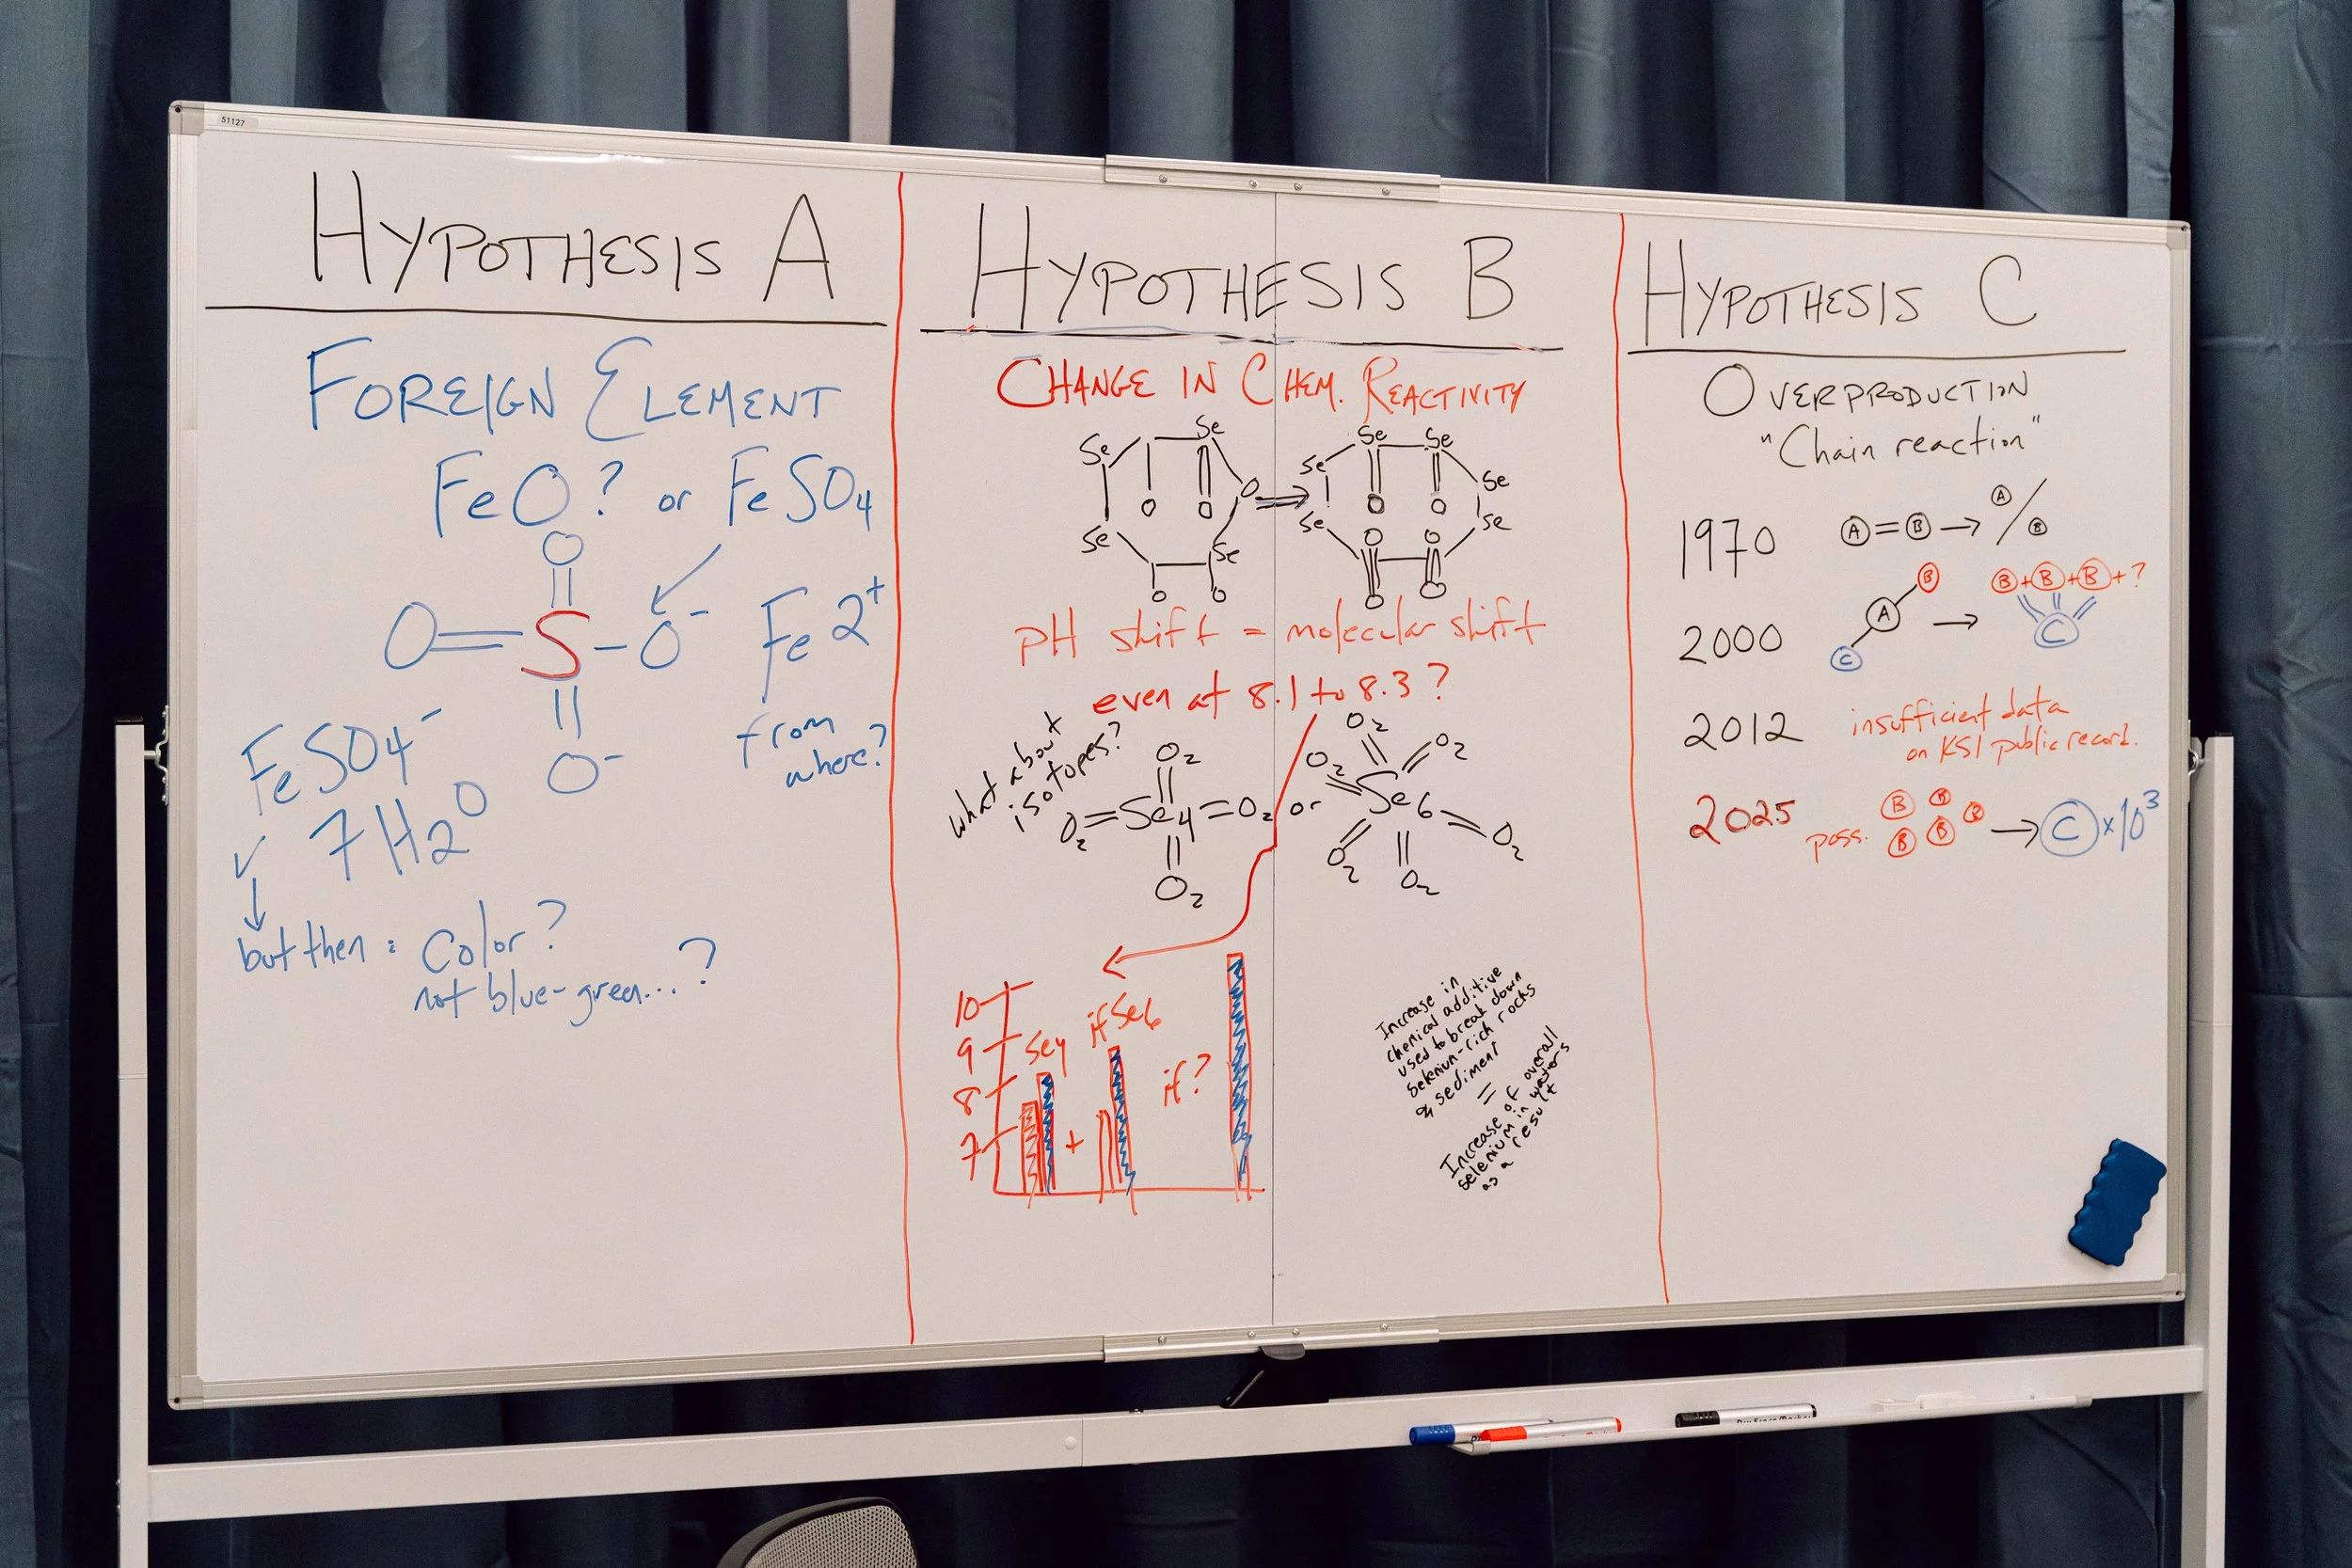 51127
HYPOTHESIS A
FOREIGN ELEMENT
FeO? or FeSO4
O
O=S-O-
O-
Fe2+
from
where?
FeSO4-
7H2O
but then: Color?
not blue-green...?
HYPOTHESIS B
CHANGE IN CHEM. REACTIVITY
Se Se Se Se
O Se Se
O O O O
Se Se Se Se
O O
O O O O
pH shift = molecular shift
even at 8.1 to 8.3?
what about
isotopes?
O2
O2=Se4=O2 or
O2
O2
O2 O2
Se6
O2 O2 O2
10
9
8
7
Se4
+
if Se6
if?
Increase in
chemical additive
used to break down
selenium-rich rocks
& sediment
=
Increase of overall
selenium in waters
as a result
HYPOTHESIS C
OVERPRODUCTION
"Chain reaction"
1970 A=B→A/B
2000 C A B → B+B+B+? C
2012 insufficient data
on KSI public record.
2025 poss. B B B B B → C×10³